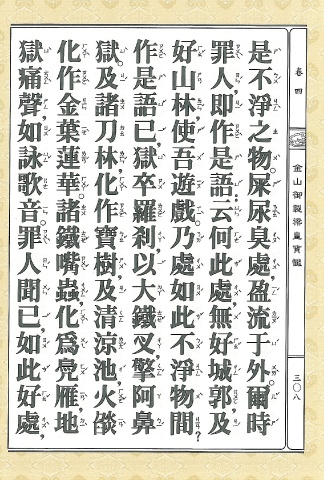 卷四
金山御製梁皇寶懺
三〇八
是不淨之物。屎尿臭處，盈流于外。爾時
罪人，即作是語：云何此處，無好城郭，及
好山林，使吾遊戲。乃處如此不淨物間？
作是語已，獄卒羅剎，以大鐵叉，擎阿鼻
獄。及諸刀林，化作寶樹，及清涼池，火燄
化作金葉蓮華。諸鐵嘴蟲，化為鳧雁，地
獄痛聲，如詠歌音。罪人聞已，如此好處，